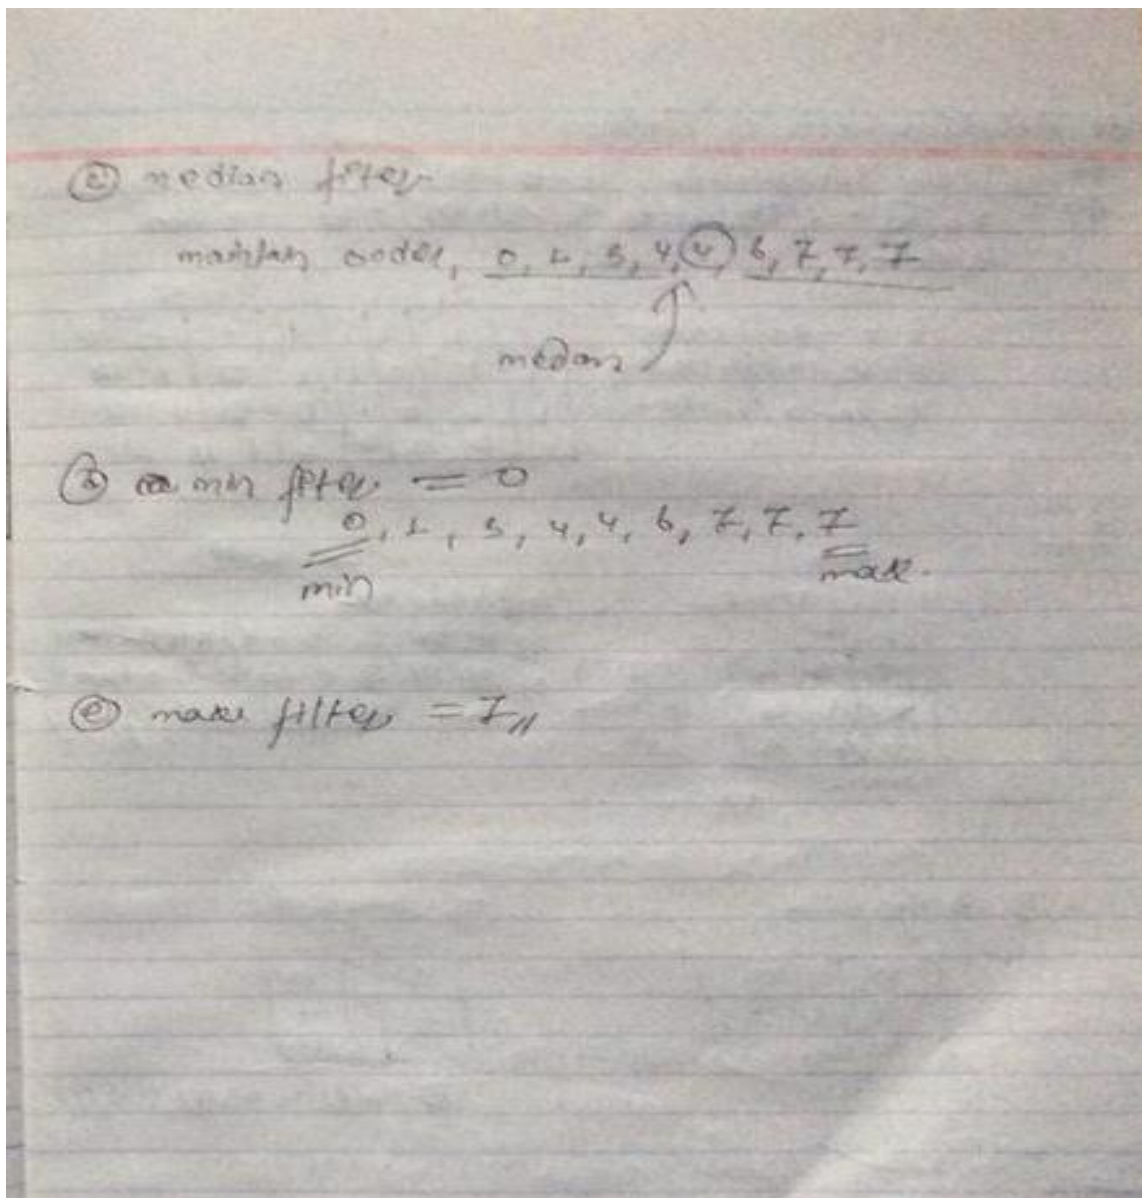 (c) median filter
maintain order, 0, 1, 3, 4, 4, 6, 7, 7, 7
median
(d) min filter = 0
0, 1, 3, 4, 4, 6, 7, 7, 7
min max.
(e) max filter = 7